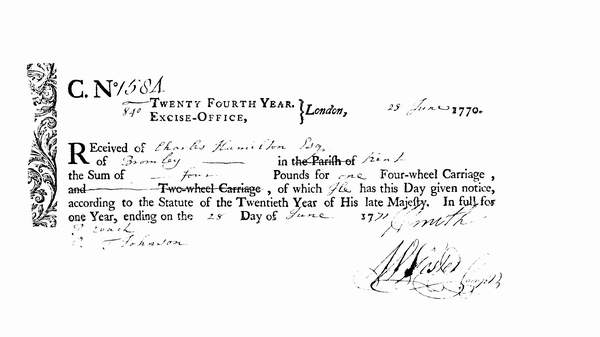 C. Nº 1584
840
TWENTY FOURTH YEAR.
EXCISE-OFFICE,
London, 28 June 1770.
REceived of Charles Hamilton Esq.
of Bromley in the Parish of Kent
the Sum of four Pounds for one Four-wheel Carriage ,
and Two-wheel Carriage , of which He has this Day given notice,
according to the Statute of the Twentieth Year of His late Majesty. In full for
one Year, ending on the 28 Day of June 1771
Smith
Coach
Johnson